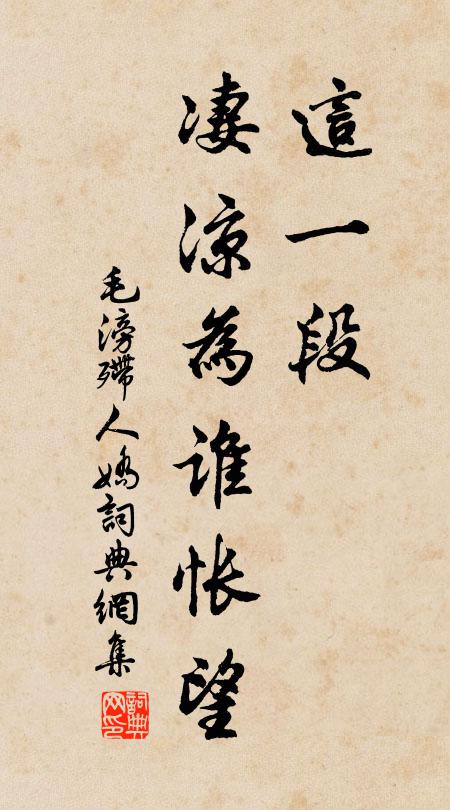 這一段
凄涼為誰悵望
毛滂殢人嬌詞典網集
詞典网印